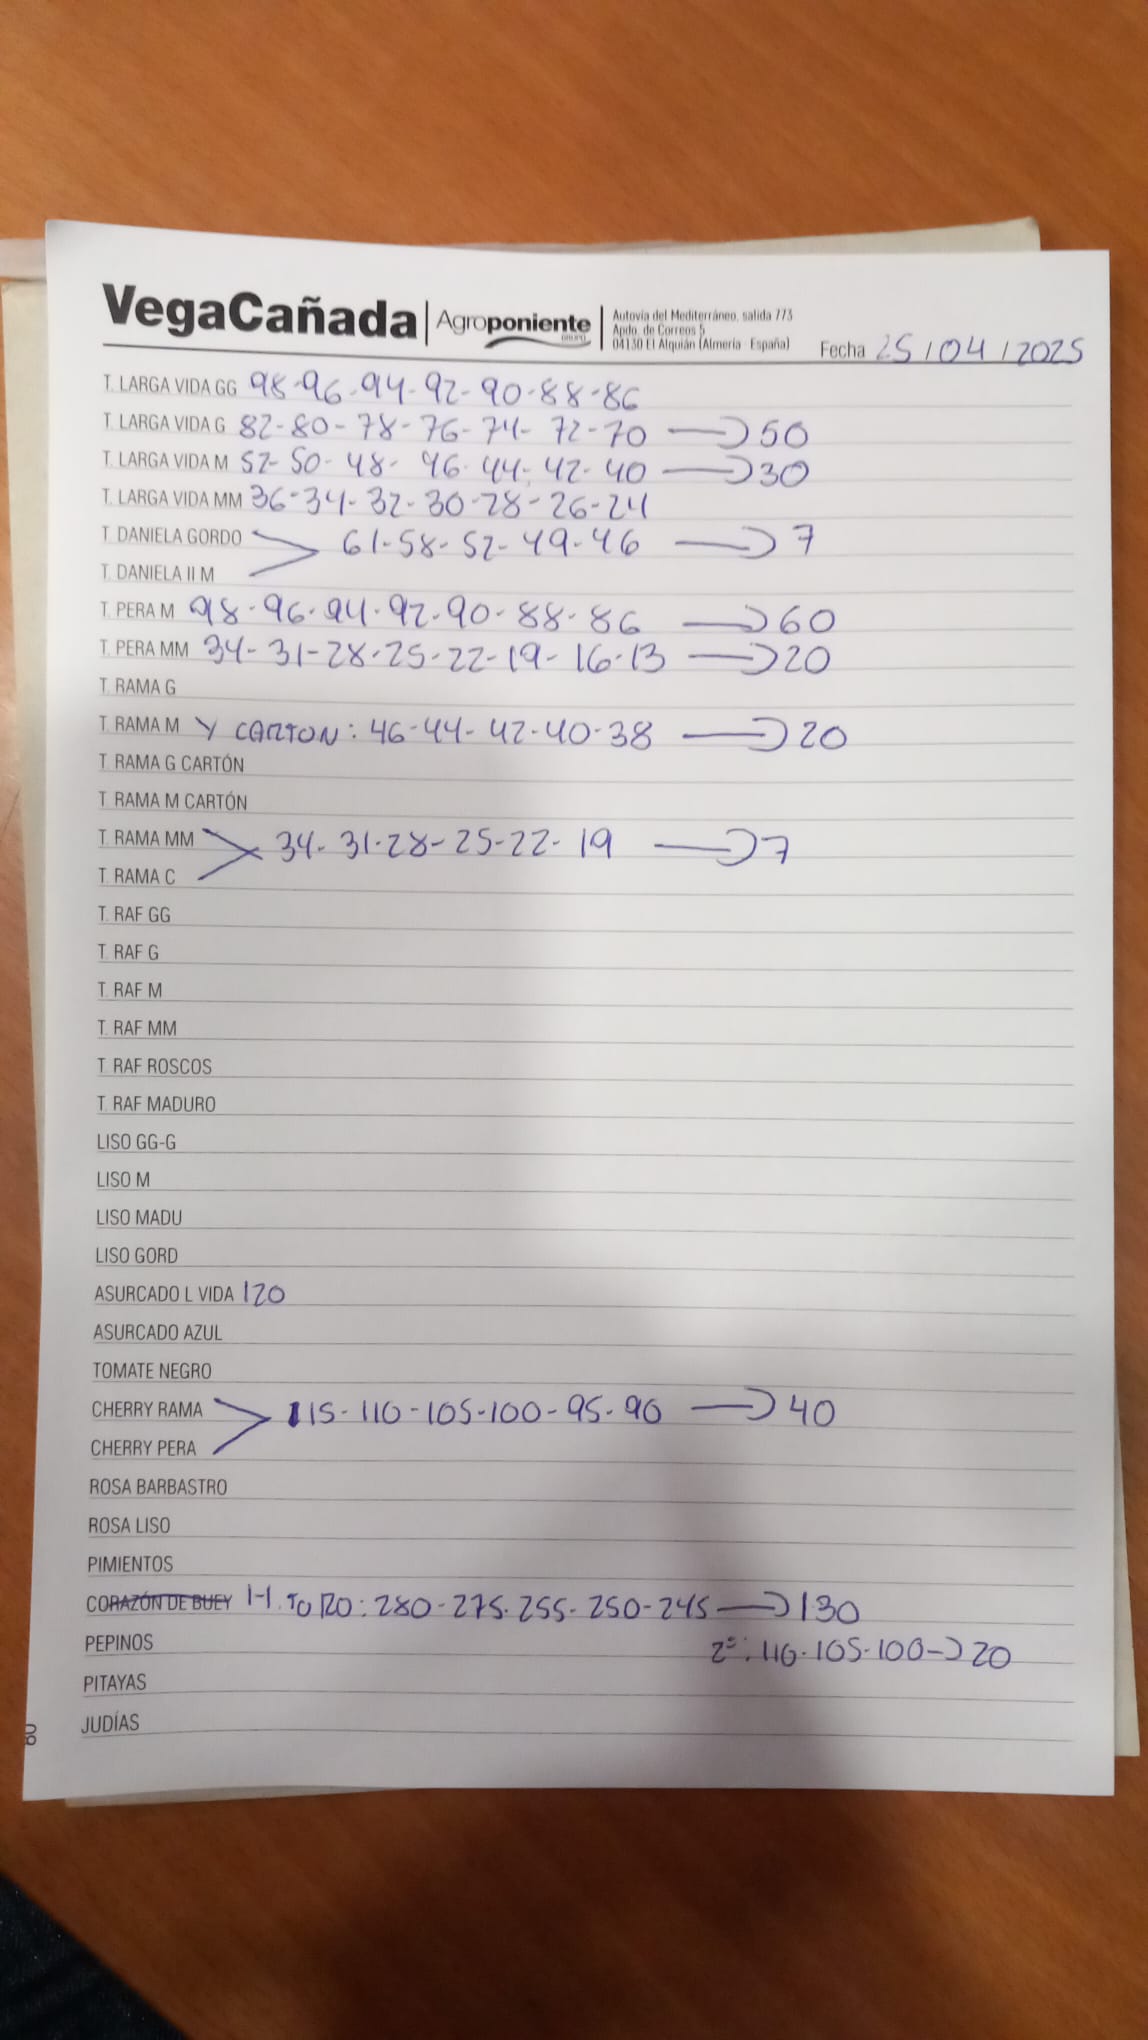 VegaCañada | Agroponiente GRUPO | Autovía del Mediterráneo, salida 773
Apdo. de Correos 5
04130 El Alquián (Almería - España)
Fecha 25/04/2025
T. LARGA VIDA GG 98-96-94-92-90-88-86
T. LARGA VIDA G 82-80-78-76-74-72-70 → 50
T. LARGA VIDA M 52-50-48-46-44-42-40 → 30
T. LARGA VIDA MM 36-34-32-30-28-26-24
T. DANIELA GORDO > 61-58-52-49-46 → 7
T. DANIELA II M
T. PERA M 98-96-94-92-90-88-86 → 60
T. PERA MM 34-31-28-25-22-19-16-13 → 20
T. RAMA G
T. RAMA M Y CARTON: 46-44-42-40-38 → 20
T. RAMA G CARTÓN
T. RAMA M CARTÓN
T. RAMA MM > 34-31-28-25-22-19 → 7
T. RAMA C
T. RAF GG
T. RAF G
T. RAF M
T. RAF MM
T. RAF ROSCOS
T. RAF MADURO
LISO GG-G
LISO M
LISO MADU
LISO GORD
ASURCADO L VIDA 120
ASURCADO AZUL
TOMATE NEGRO
CHERRY RAMA > 115-110-105-100-95-90 → 40
CHERRY PERA
ROSA BARBASTRO
ROSA LISO
PIMIENTOS
CORAZÓN DE BUEY H. TORO: 280-275-255-250-245 → 130
PEPINOS 2ª: 110-105-100 → 20
PITAYAS
JUDÍAS